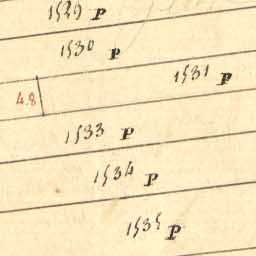 1529 P
1530 P
1531 P
48
1533 P
1534 P
1535 P